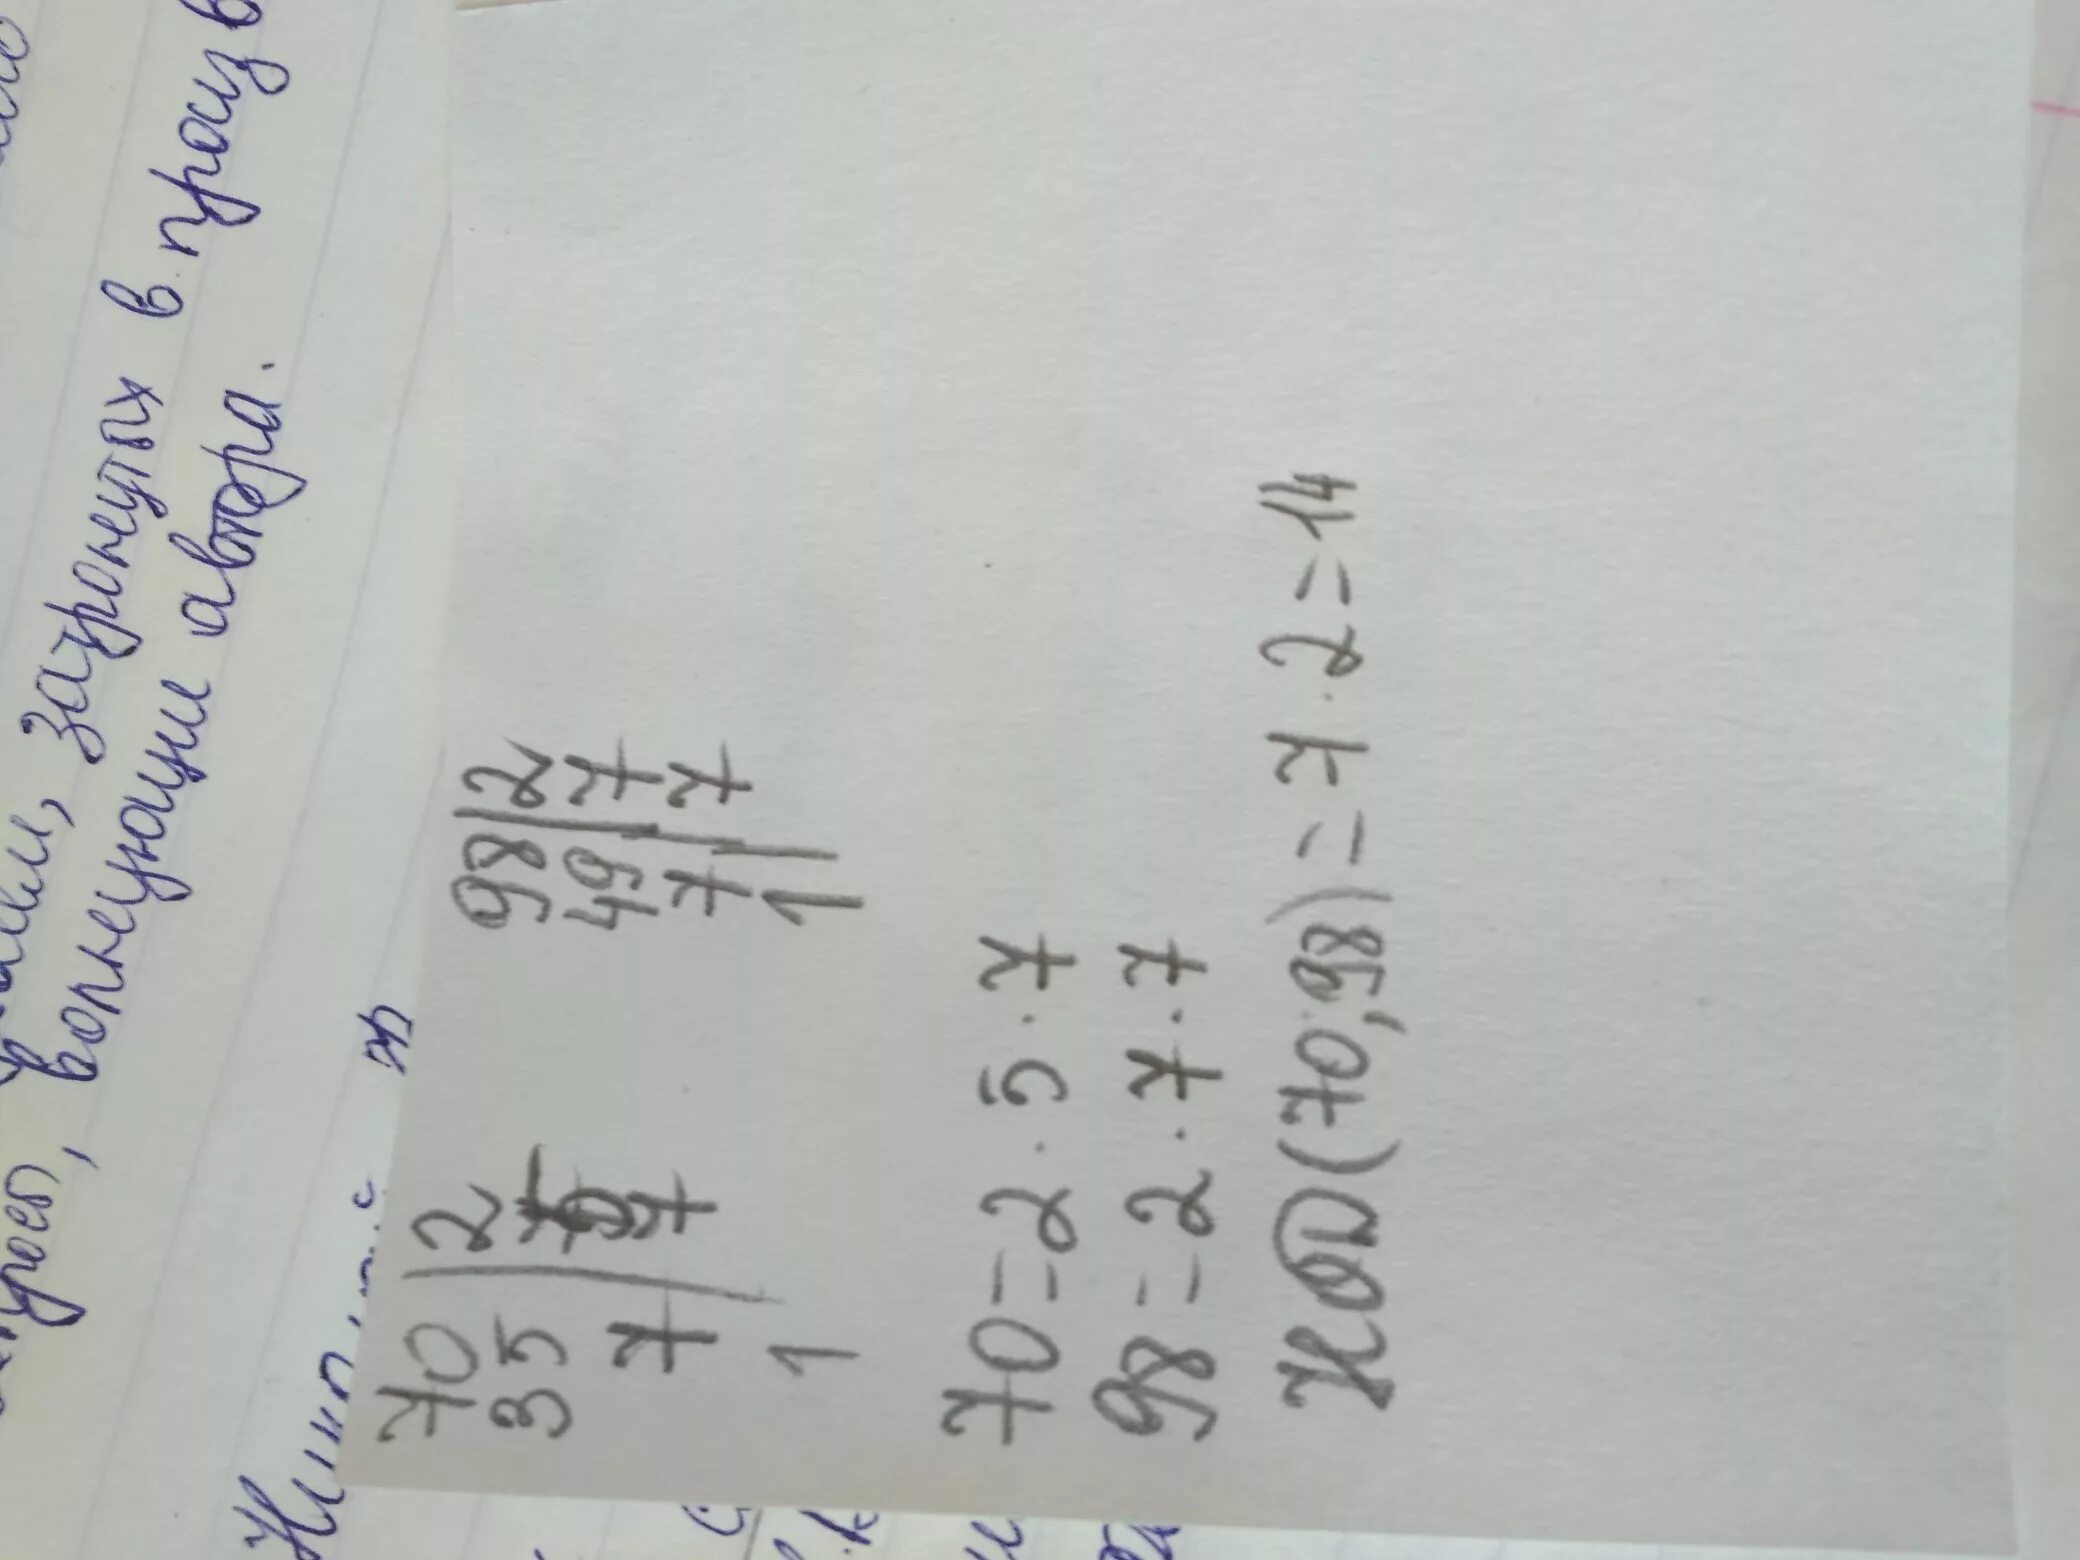 затронутых в произв
, волнующими автора.
70 | 2
35 | 5
7 | 7
1
98 | 2
49 | 7
7 | 7
1
70 = 2 · 5 · 7
98 = 2 · 7 · 7
НОД (70, 98) = 7 · 2 = 14